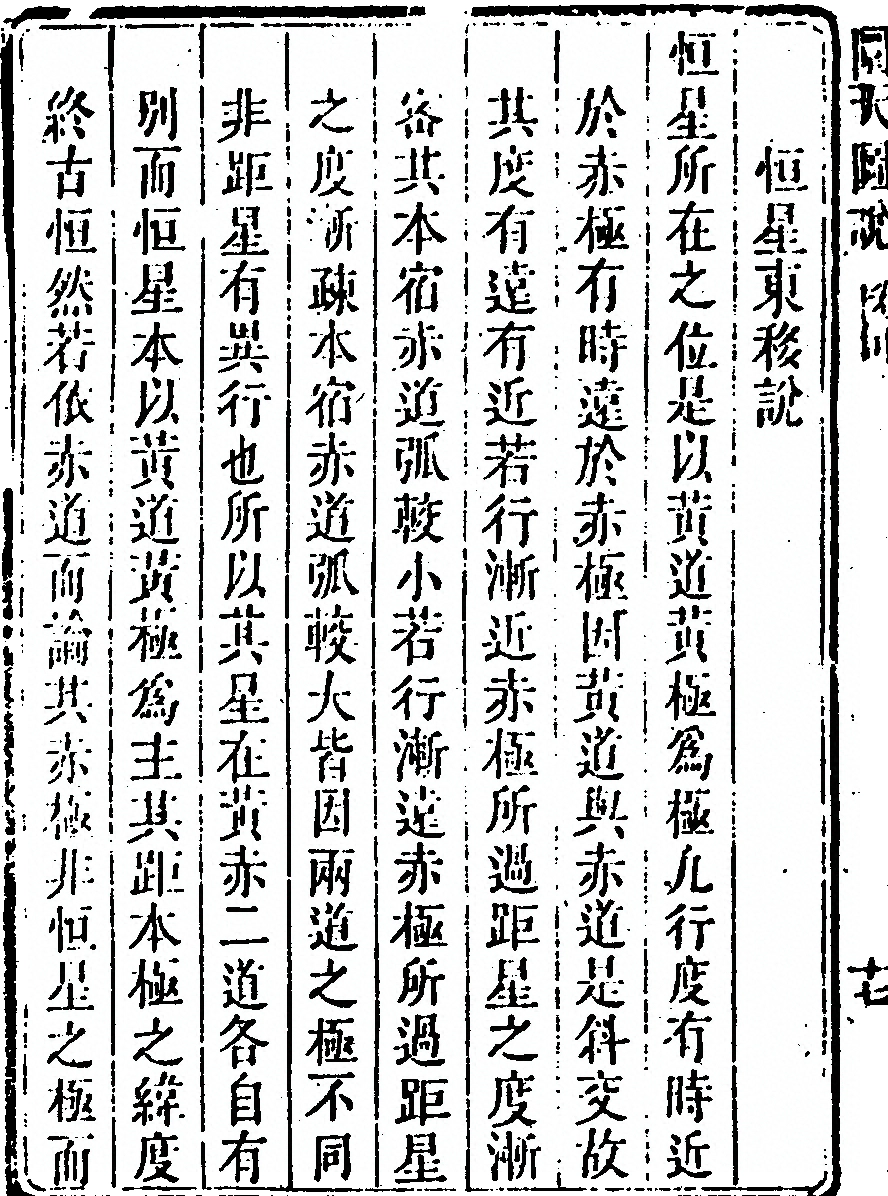 圜天圖說
十七
恒星東移說
恒星所在之位是以黃道黃極爲極凡行度有時近
於赤極有時遠於赤極因黃道與赤道是斜交故
其度有遠有近若行漸近赤極所過距星之度漸
密其本宿赤道弧較小若行漸遠赤極所過距星
之度漸疎本宿赤道弧較大皆因兩道之極不同
非距星有異行也所以其星在黃赤二道各自有
別而恒星本以黃道黃極爲主其距本極之緯度
終古恒然若依赤道而論其赤極非恒星之極而